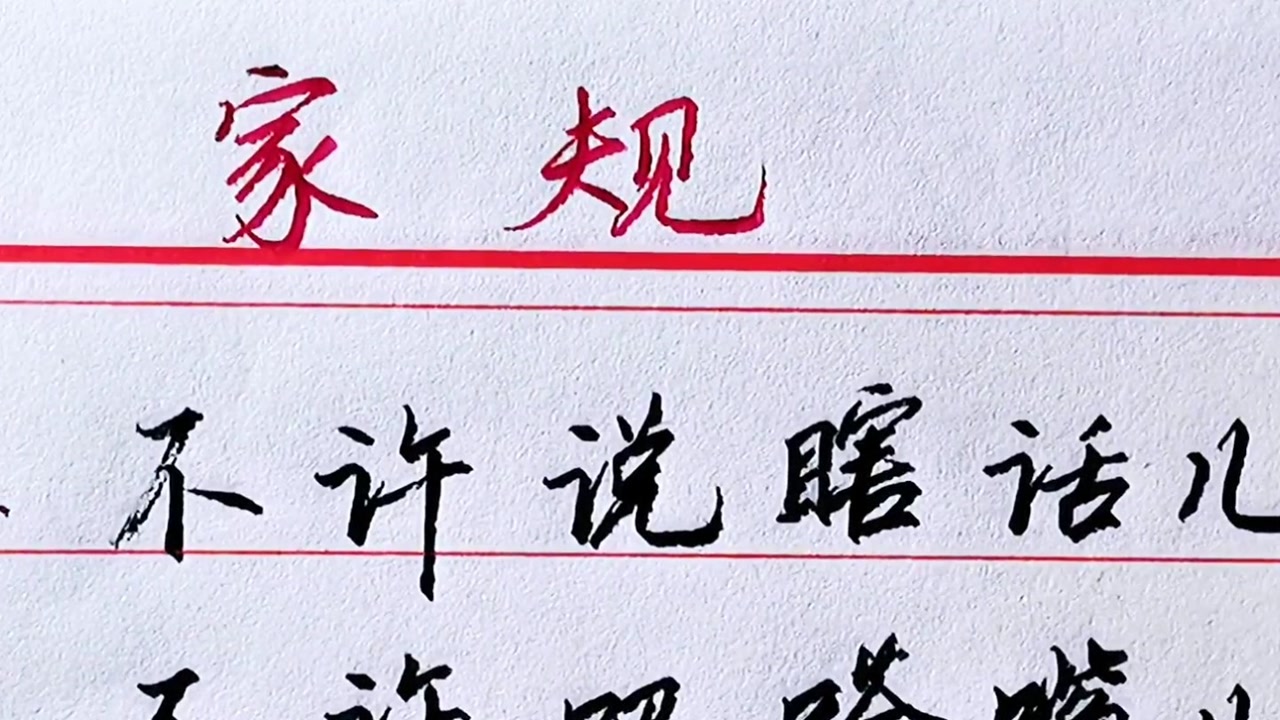 家规
不许说瞎话儿
不许